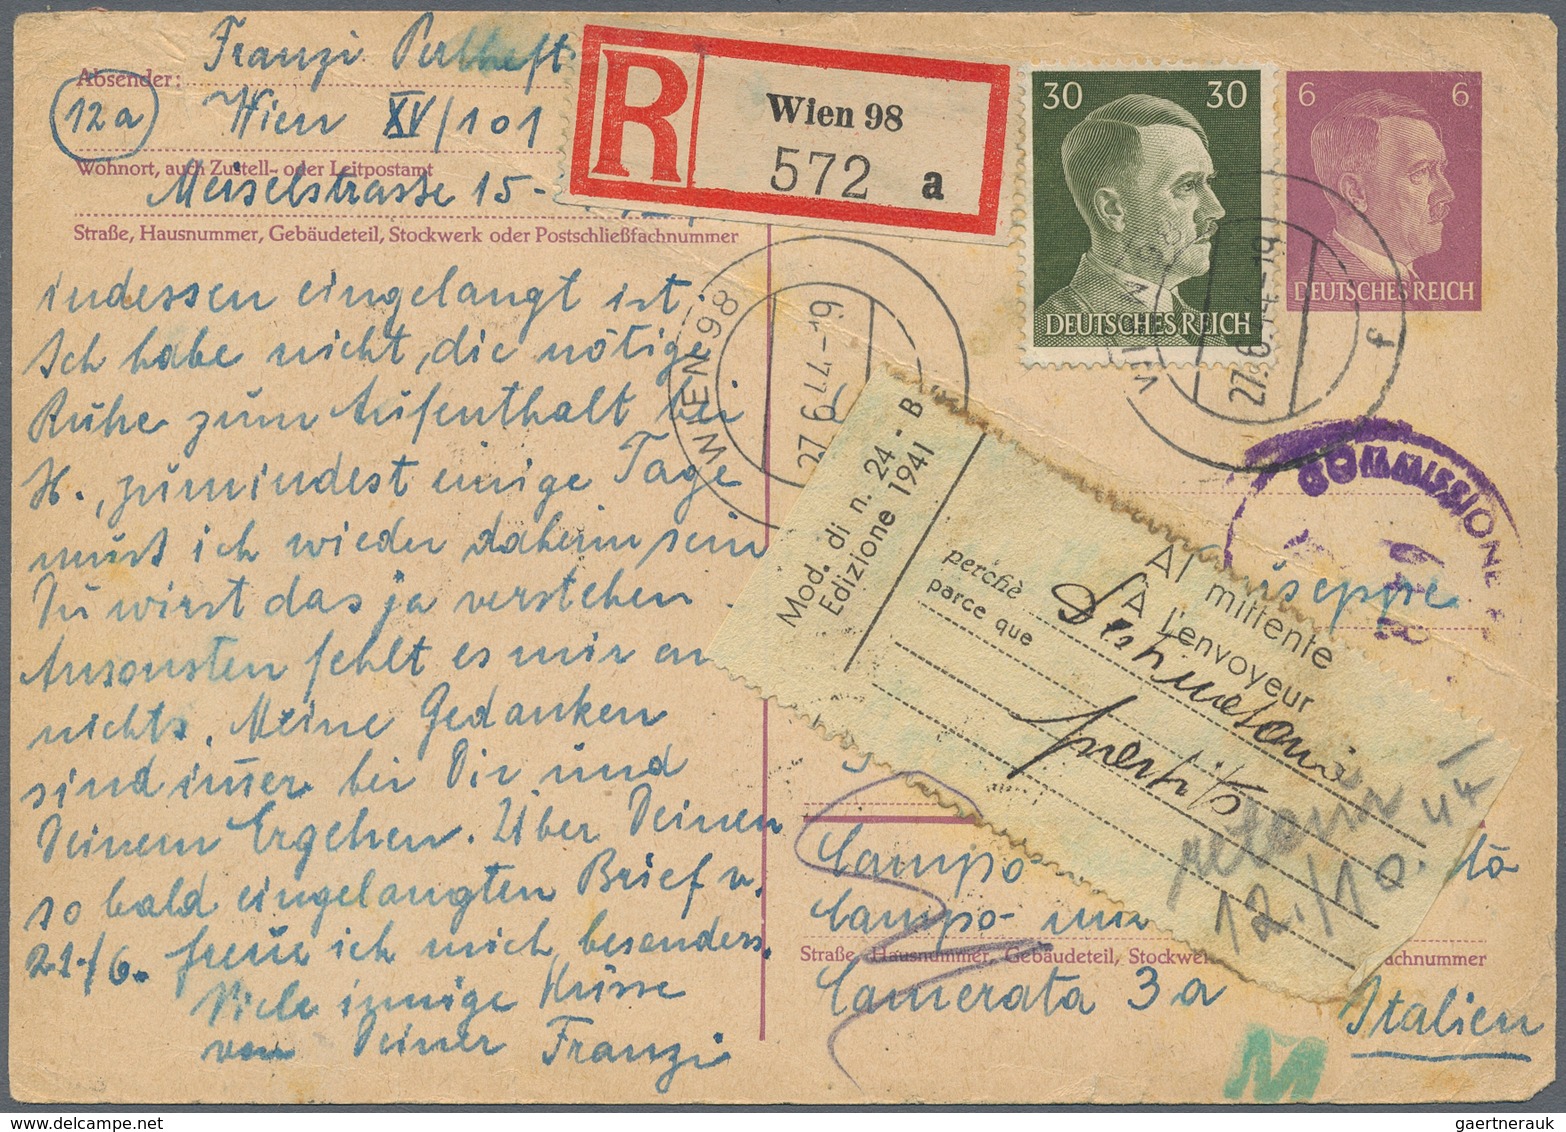 Franzi Perlheft
Absender:
12a
Wien XV/101
Wohnort, auch Zustell- oder Leitpostamt
Meiselstrasse 15-
Straße, Hausnummer, Gebäudeteil, Stockwerk oder Postschließfachnummer
indessen eingelangt ist.
Ich habe nicht, die nötige
Ruhe zum Aufenthalt bei
H., zumindest einige Tage
muss ich wieder daheim sein
Du wirst das ja verstehen.
Ansonsten fehlt es mir an
nichts. Meine Gedanken
sind im̅er bei Dir und
Deinem Ergehen. Über Deinen
so bald eingelangten Brief v.
21./6. freue ich mich besonders.
Viele innige Küsse
von Deiner Franzi
R
Wien 98
572 a
30 30
DEUTSCHES REICH
6 6
DEUTSCHES REICH
WIEN 98
27.6.44-19
WIEN 98
27.6.44-19
f
COMMISSIONE
Mod. di n. 24 - B
Edizione 1941
Al mittente
À l'envoyeur
perchè
parce que
retour
12./10. 44
Giuseppe
Campo
Campo
Straße, Hausnummer, Gebäudeteil, Stockwe chnummer
Camerata 3a
Italien
M
gaertnerauk / www.delcampe.net